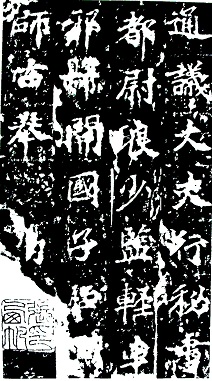 通議大夫行秘書
都尉琅少監輕車
邪縣開國子
師古奉